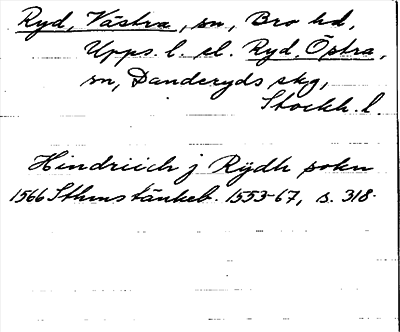 Ryd, Västra, sn, Bro hd,
Upps. l. el. Ryd, Östra,
sn, Danderyds skg,
Stockh. l.
Hindriich j Rÿdh sokn
1566 Sthms tänkeb. 1553-67, s. 318.